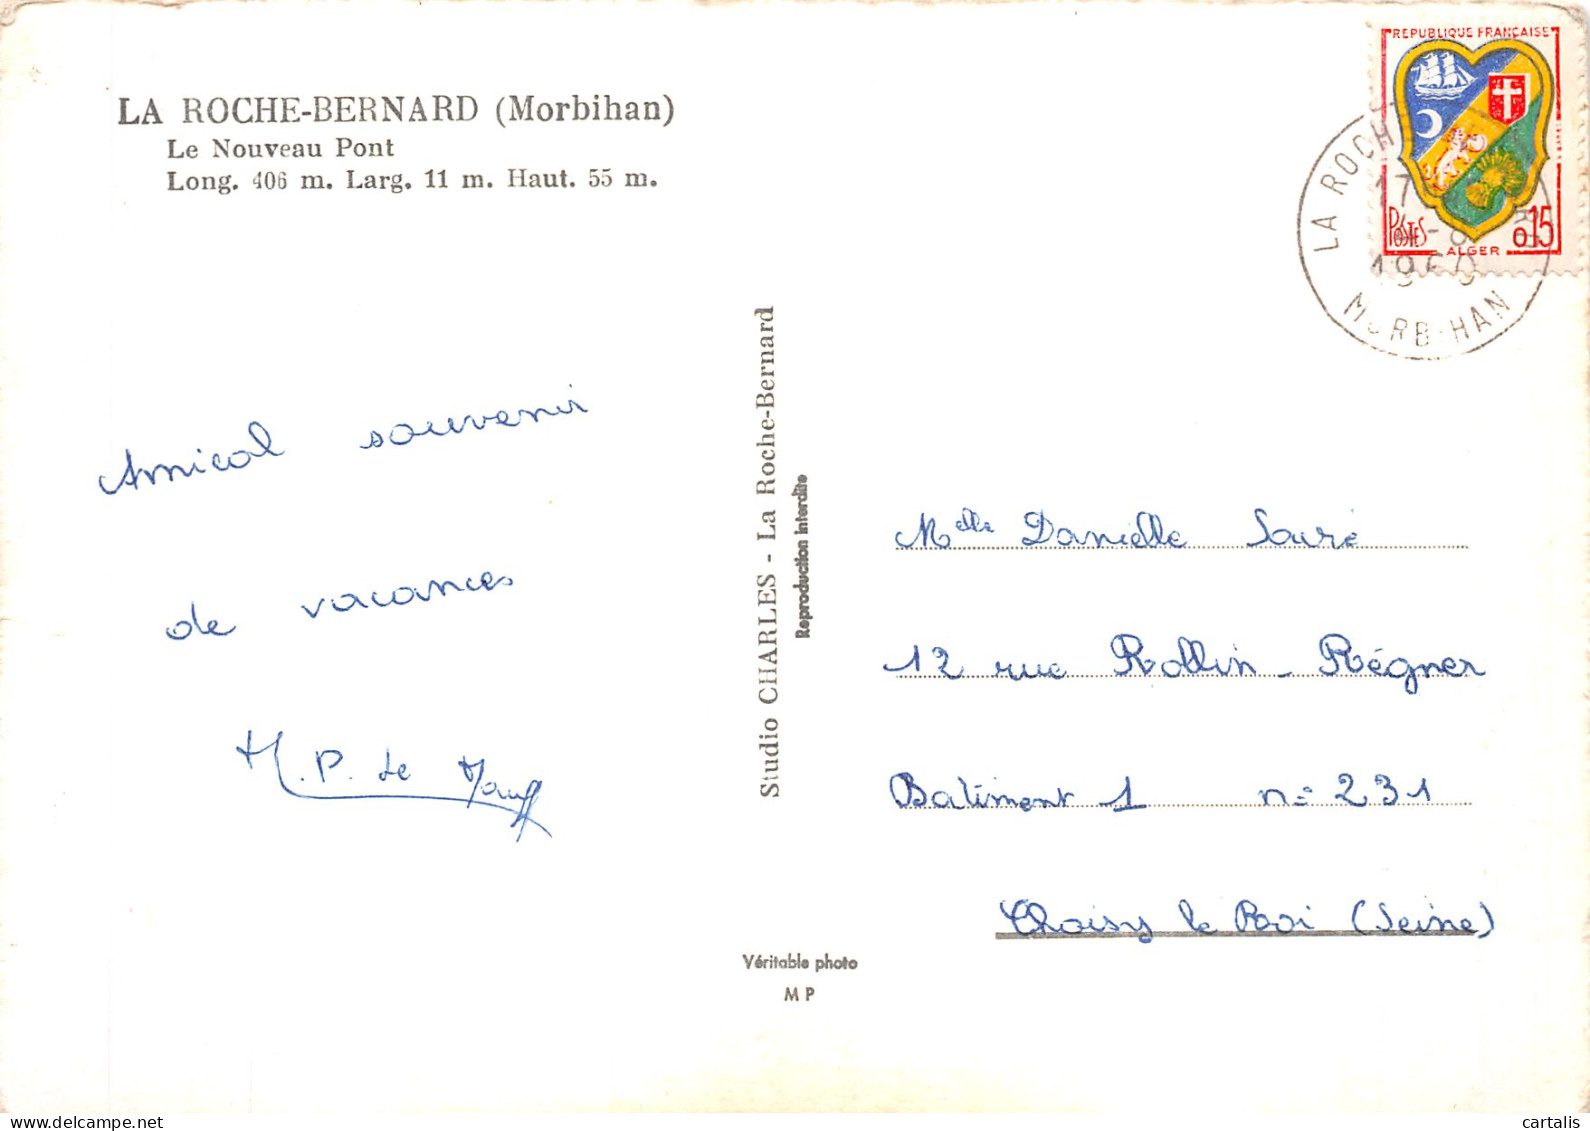 LA ROCHE-BERNARD (Morbihan)
Le Nouveau Pont
Long. 406 m. Larg. 11 m. Haut. 55 m.
REPUBLIQUE FRANÇAISE
POSTES
0,15
ALGER
LA ROCH
17
1960
MORB HAN
Amical souvenir
de vacances
M. P. Le
Studio CHARLES - La Roche-Bernard
Reproduction interdite
Melle Danielle Souré
12 rue Rollin - Régner
Batîment 1 n° 231
Choisy le Roi (Seine)
Véritable photo
M P
cartalis